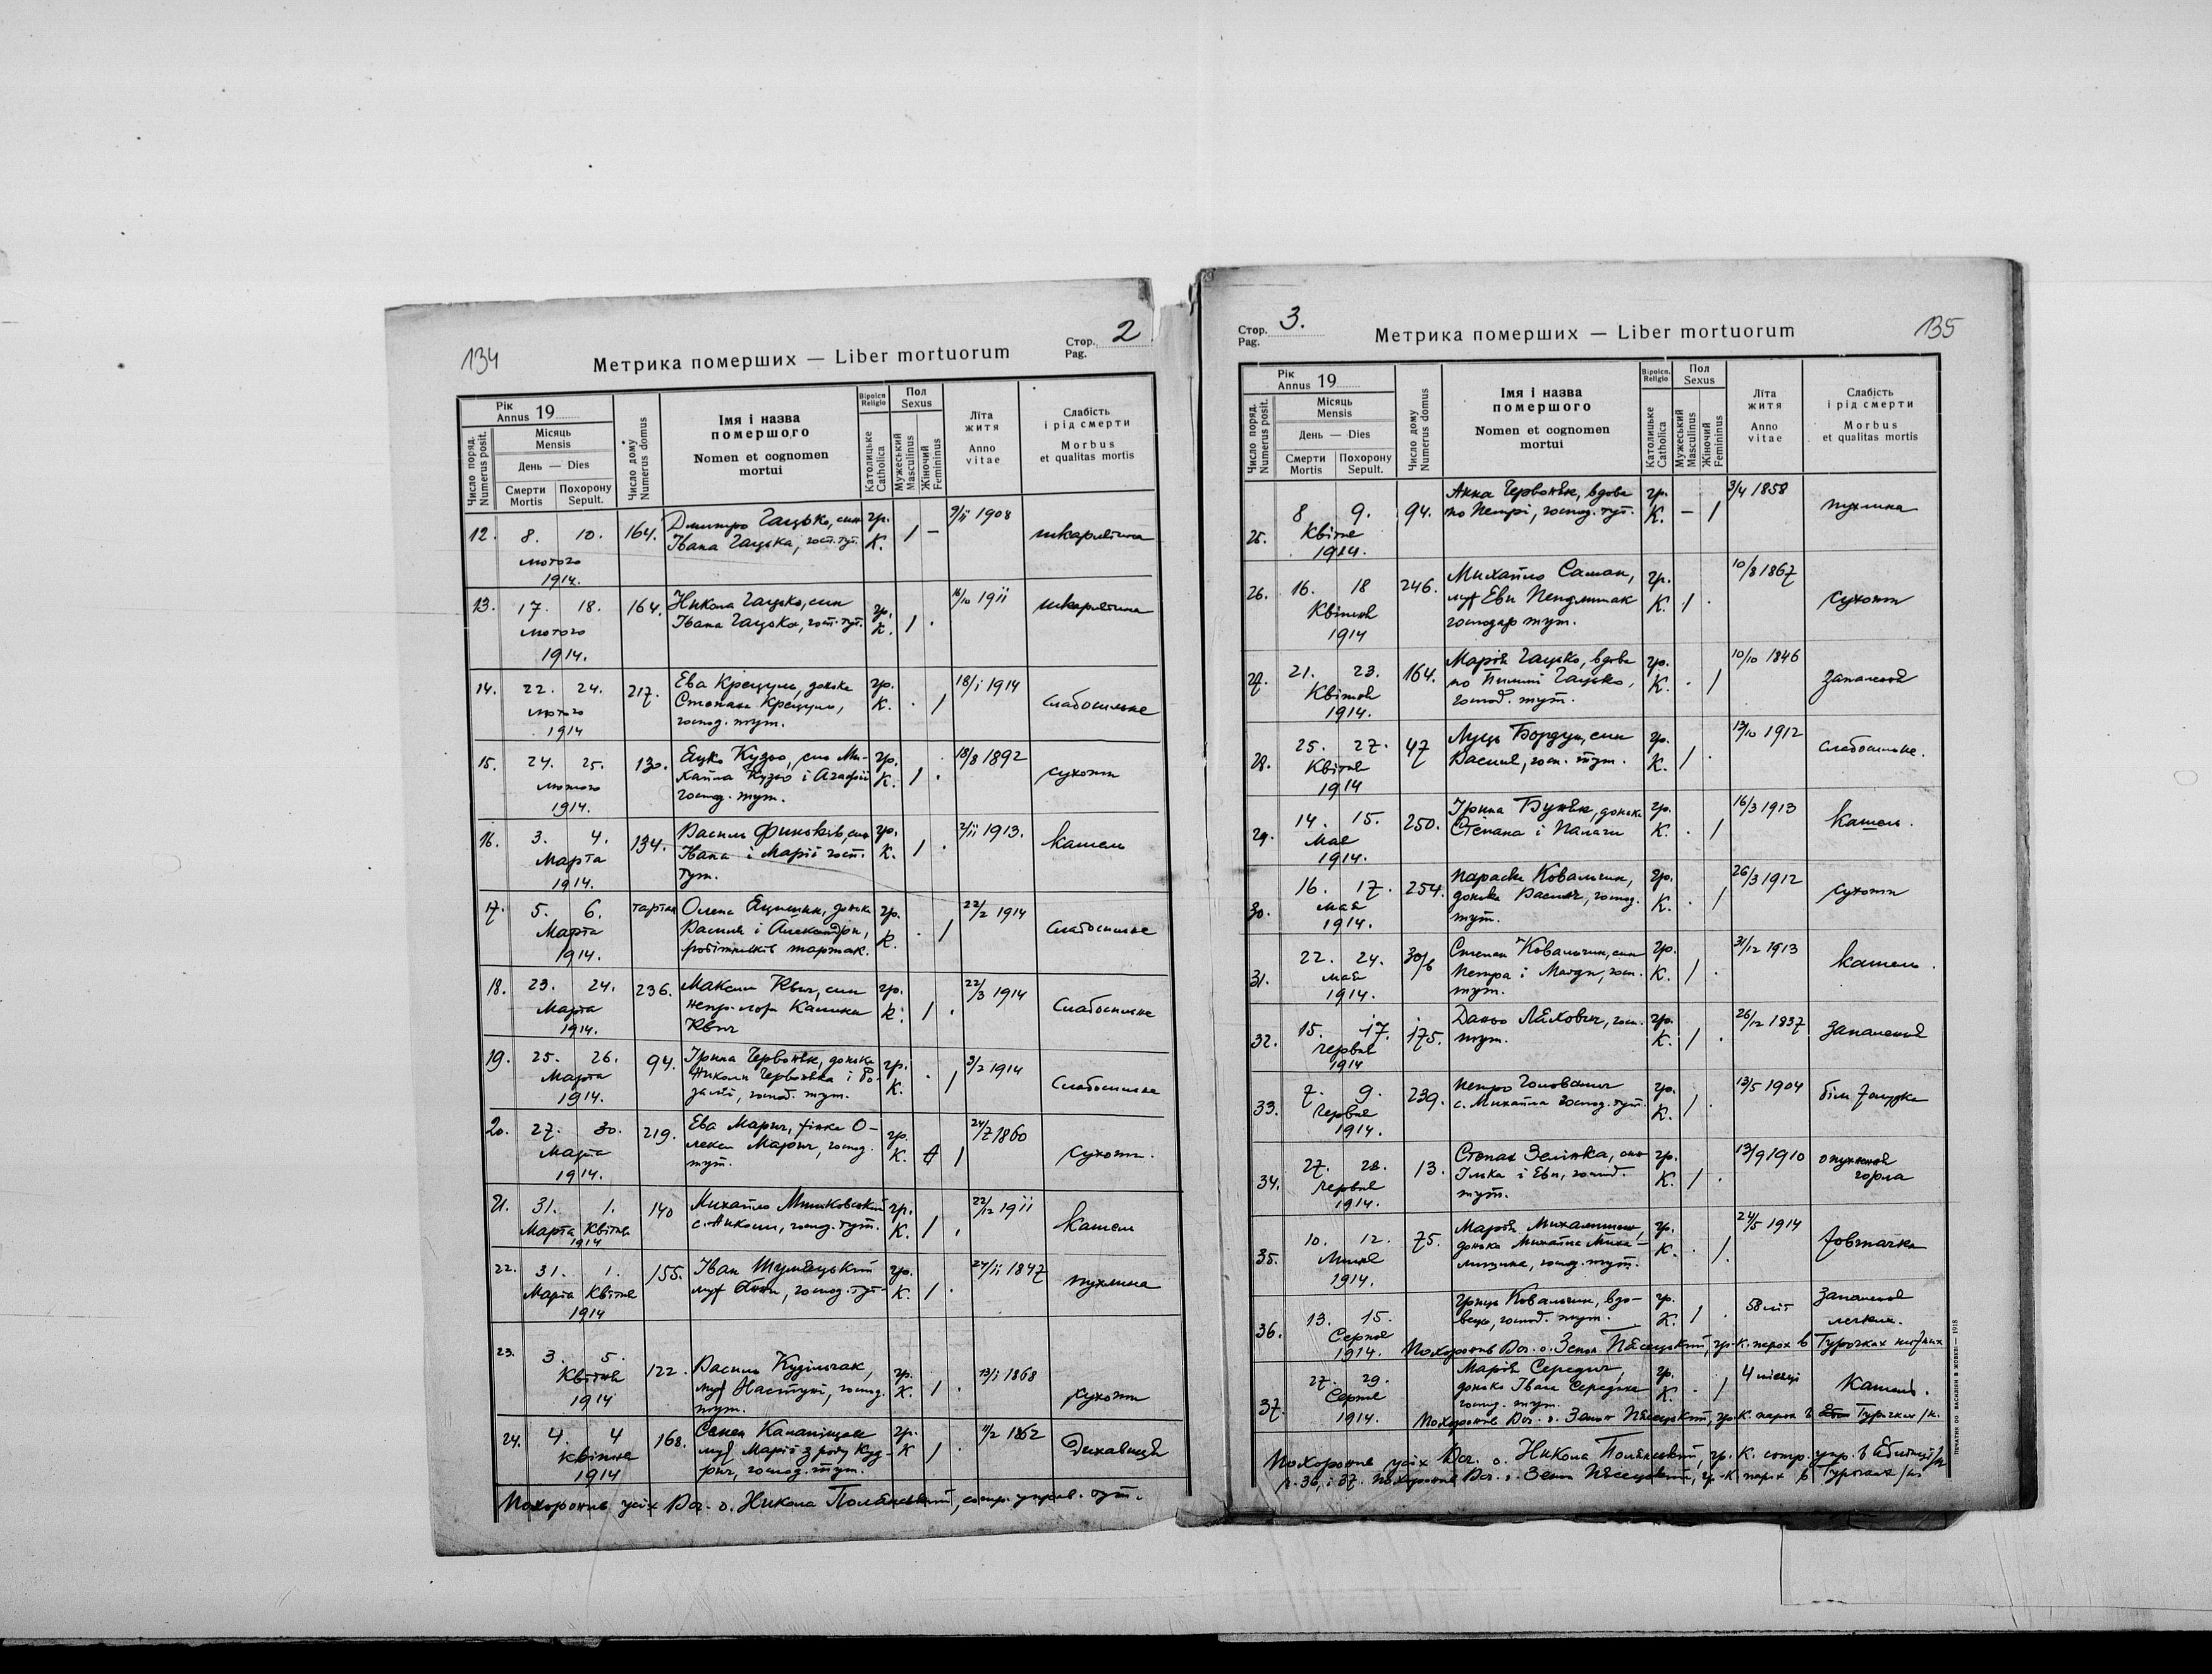 134
Метрика померших — Liber mortuorum
Стор. 2
Pag.
Рік
Annus 19
Число поряд.
Numerus posit.
Місяць
Mensis
День — Dies
Смерти
Mortis
Похорону
Sepult.
Число дому
Numerus domus
Імя і назва
помершого
Nomen et cognomen
mortui
Віроісп.
Religio
Католицьке
Catholica
Пол
Sexus
Мужеський
Masculinus
Жіночий
Femininus
Літа
житя
Anno
vitae
Слабість
і рід смерти
Morbus
et qualitas mortis
12. 8. 10. лютого 1914. 164. Дмитро Гацько, син
Івана Гацька, госп. тут. гр. К. / – 9/ii 1908 шкарлятина
13. 17. 18. лютого 1914. 164. Никола Гацько, син
Івана Гацька, госп. тут. гр. К. / . /10 19ii шкарлятина
14. 22. 24. лютого 1914 217. Ева Крецул, донька
Степана Крецула,
господ. тут. гр. К. . / 18/i 1914 слабосильне
15. 24. 25. лютого 1914. 130. Яцко Кузьо, син Ми-
хайла Кузьо і Агафії
господ. тут. гр. К. / . 18/8 1892 сухоти
16. 3. 4. Марта 1914. 134. Василь син
Івана і Марії госп.
тут. гр. К. / . 2/ii 1913. кашель
17. 5. 6. Марта 1914. тартак Олена Яцишин, донька
Василя і Александри,
робітників тартак. гр. К. . / 22/2 1914 слабосильне
18. 23. 24. Марта 1914. 236. Максим Квич, син
непр. лора
Квич гр. К. / . 22/3 1914 Слабосильне
19. 25. 26. Марта 1914. 94. Ірина Червоняк, донька
Николи Червоняка і Ро-
залії, господ. тут. гр. К. . / 3/2 1914 Слабосильне
20. 27. 30. Марта 1914. 219. Ева Марич, жінка О-
лекси Марич, господ.
тут. гр. К. / 24/7 1860 Сухоти.
21. 31. 1. Марта Квітня 1914 140 Михайло Мишковский
с. Николи, господ. тут. гр. К. / . 22/12 19ii Кашель
22. 31. 1. Марта Квітня 1914 155. Іван Шумяцький
муж Анни, господ. тут. гр. К. / . 24/ii 1847 пухлина
23. 3. 5. Квітня 1914 122. Василь Кузільчак,
муж Настуні, господ.
тут. гр. К. / . 13/i 1868 сухоти
24. 4. 4 квітня 1914 168. Семен
муж Марії з роду Куд-
рич, господ. тут. гр. К / . 11/2 1862 Дихавиця
Похоронив усіх Вч. о. Никола Полянський, сотр. управ. тут.
Стор. 3.
Pag.
Метрика померших — Liber mortuorum
135
Рік
Annus 19
Число поряд.
Numerus posit.
Місяць
Mensis
День — Dies
Смерти
Mortis
Похорону
Sepult.
Число дому
Numerus domus
Імя і назва
помершого
Nomen et cognomen
mortui
Віроісп.
Religio
Католицьке
Catholica
Пол
Sexus
Мужеський
Masculinus
Жіночий
Femininus
Літа
житя
Anno
vitae
Слабість
і рід смерти
Morbus
et qualitas mortis
25. 8 9. Квітня 1914. 94. Анна Червоняк, вдова
по Петрі, господ. тут. гр. К. – / 3/4 1858 пухлина
26. 16. 18 Квітня 1914 246. Михайло Саман,
муж Еви
господар тут. гр. К. / . 10/8 1867 сухоти
27. 21. 23. Квітня 1914. 164. Марія Гацько, вдова
по Пилипі Гацько,
господ. тут. гр. К. . / 10/10 1846 запаленя
28. 25. 27. Квітня 1914 47 Луць Бордун, син
Василя, госп. тут. гр. К. / . 13/10 1912 слабосильне.
29. 14. 15. Мая 1914. 250. Ірина Буняк, донька
Степана і Палаги гр. К. . / 16/3 1913 Кашель.
30. 16. 17. мая 1914. 254. Параска Ковальчин,
донька Василя, господ.
тут. гр. К. . / 26/3 1912 сухоти
31. 22. 24. мая 1914. 30/б Степан Ковальчин, син
Петра і Магди, госп.
тут. гр. К. / . 31/12 1913 кашель.
32. 15. 17. червня 1914 175. Даньо Ляхович, госп.
тут. гр. К. / . 26/12 1837 запаленя
33. 7. 9. червня 1914. 239. Петро Голованич
с. Михайла господ. тут. гр. К. / . 13/5 1904 біль жолудка
34. 27. 28. червня 1914. 13. Степан Зелінка, син
Ілька і Еви, господ.
тут. гр. К. / . 13/9 1910 опухненя
горла
35. 10. 12. Липня 1914. 75. Марія Михалишин,
донька Михайла Миха-
лишина, господ. тут. гр. К. . / 24/5 1914 жовтачка
36. 13. 15. Серпня 1914. Гриць Ковальчин, вдо-
вець, господ. тут. гр. К. / . 58 літ Запаленя
легких.
Похоронив Вч. о. Зенон Пясецький, гр. к. парох в Турочках нижних
37. 27. 29. Серпня 1914. Марія Середич,
донька Івана Середича
господ. тут. гр. К. . / 4 місяці Кашель.
Похоронив Вч. о. Зенон Пясецький, гр. к. парох в Турочках /н.
Похоронив усіх Вч. о. Никола Полянський, гр. к. сотр. упр. в Яблінці/н
ч. 36, і 37. похоронив Вч. о. Зенон Пясецький, гр. к. парох в Турочках/н
ПЕЧАТНЯ ОО. ВАСИЛІЯН В ЖОВКВІ — 1918